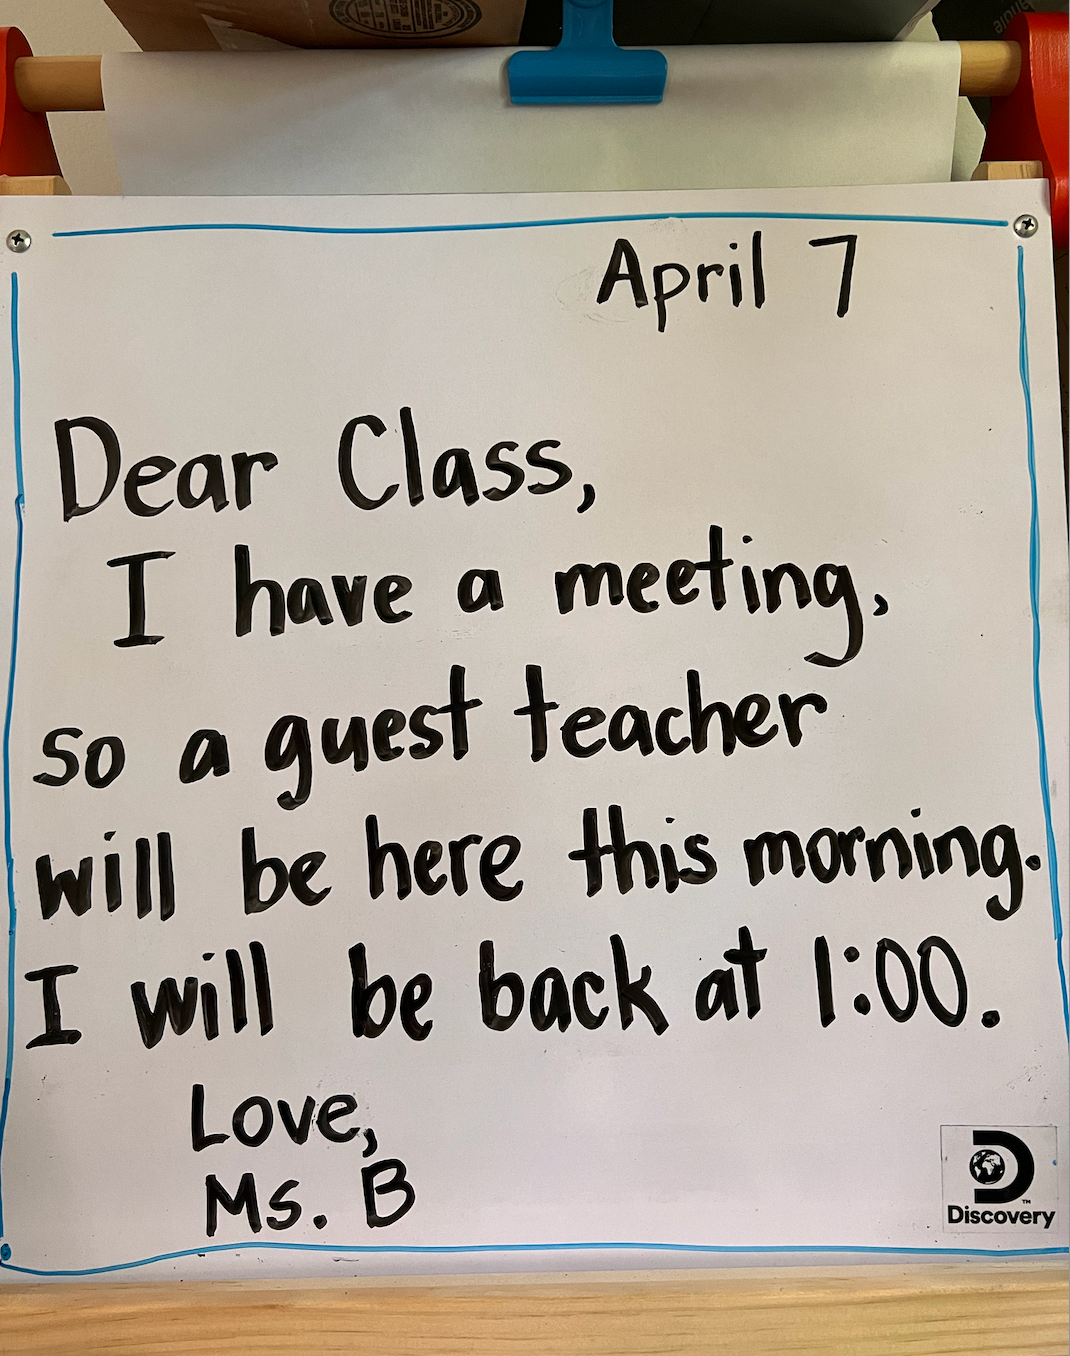 April 7
Dear Class,
I have a meeting,
so a guest teacher
will be here this morning.
I will be back at 1:00.
Love,
Ms. B
Discovery